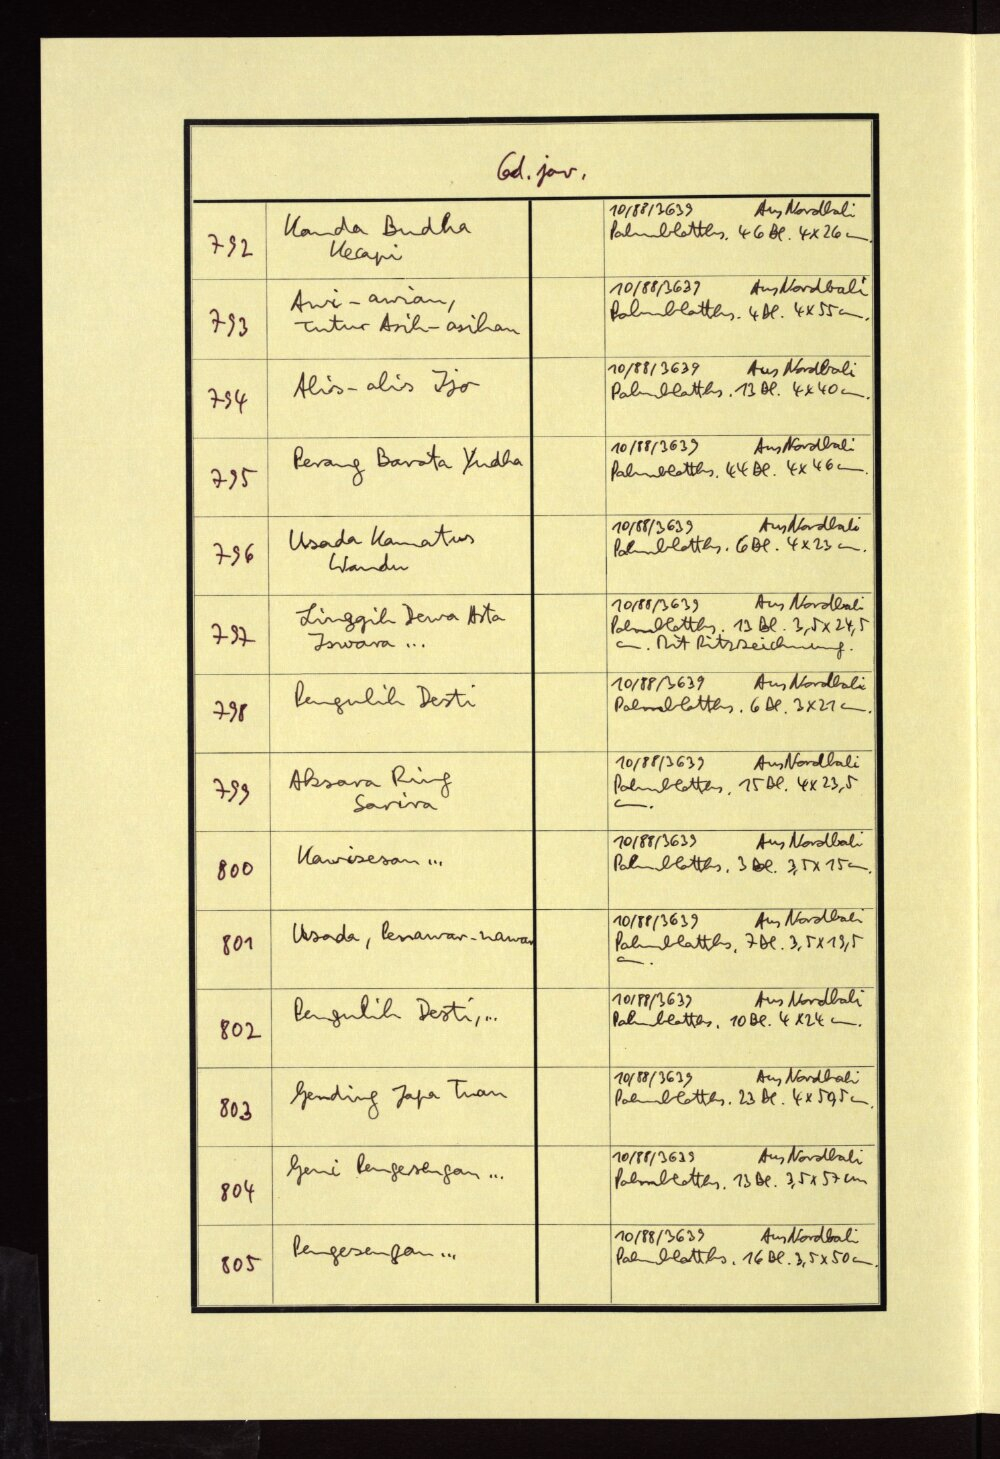 Cd. jav.
792
Kanda Budha
Kecapi
10/88/3639 Aus Nordbali
Palmblatths. 46 Bl. 4x26 cm.
793
Awi-awian,
Tutur Asih-asihan
10/88/3639 Aus Nordbali
Palmblatths. 4 Bl. 4x55 cm.
794
Alis-alis Ijo
10/88/3639 Aus Nordbali
Palmblatths. 13 Bl. 4x40 cm.
795
Perang Barata Yudha
10/88/3639 Aus Nordbali
Palmblatths. 44 Bl. 4x46 cm.
796
Usada Kamatus
Wandu
10/88/3639 Aus Nordbali
Palmblatths. 6 Bl. 4x23 cm.
797
Linggih Dewa Asta
Iswara ...
10/88/3639 Aus Nordbali
Palmblatths. 13 Bl. 3,5x24,5
cm. Mit Ritzzeichnung.
798
Pengulih Desti
10/88/3639 Aus Nordbali
Palmblatths. 6 Bl. 3x21 cm.
799
Aksara Ring
Sarira
10/88/3639 Aus Nordbali
Palmblatths. 15 Bl. 4x23,5
cm.
800
Kawisesan ...
10/88/3639 Aus Nordbali
Palmblatths. 3 Bl. 3,5x15 cm.
801
Usada, Penawar-nawar
10/88/3639 Aus Nordbali
Palmblatths. 7 Bl. 3,5x19,5
cm.
802
Pengulih Desti, ...
10/88/3639 Aus Nordbali
Palmblatths. 10 Bl. 4x24 cm.
803
Gending Japa Tuan
10/88/3639 Aus Nordbali
Palmblatths. 23 Bl. 4x50,5 cm.
804
Geni Pengesengan ...
10/88/3639 Aus Nordbali
Palmblatths. 13 Bl. 3,5x57 cm
805
Pengesengan ...
10/88/3639 Aus Nordbali
Palmblatths. 16 Bl. 3,5x50 cm.